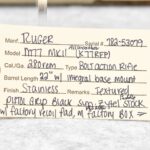 Manf. RUGER Serial # 782-53079
Model M77 MKII All Weather (K77RFP)
Cal/Ga. 280rem Type Bolt Action Rifle
Barrel Length 22" w/ integral base mount
Finish Stainless Remarks Textured
Pistol grip Black Syn. Zytel Stock
w/ factory recoil pad, w/ factory BOX